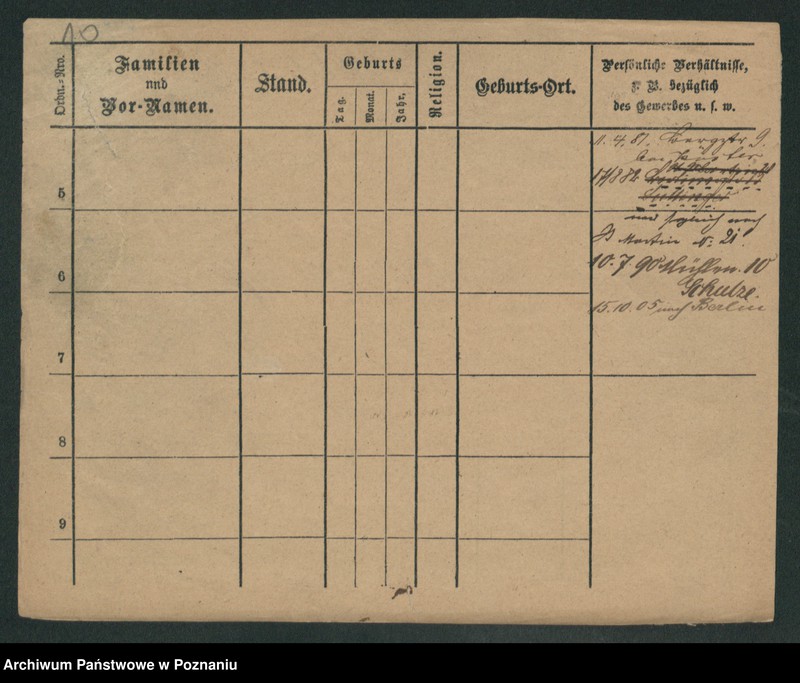 10
Ordn.-Nro.
Familien
und
Vor-Namen.
Stand.
Geburts
Tag.
Monat.
Jahr.
Religion.
Geburts-Ort.
Persönliche Verhältnisse,
z. B. bezüglich
des Gewerbes u. s. w.
4. 81. Bergstr 9.
5
17/8 82
und sogleich nach
St Martin N: 21
6
10. 7. 90 Mühlen. 10
Schulze.
15. 10. 05 nach Berlin
7
8
9
Archiwum Państwowe w Poznaniu